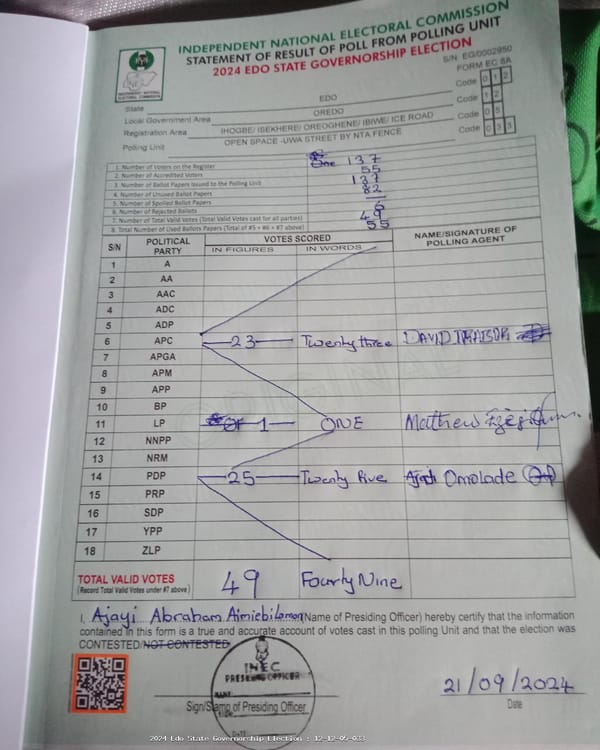 INDEPENDENT NATIONAL ELECTORAL COMMISSION
STATEMENT OF RESULT OF POLL FROM POLLING UNIT
2024 EDO STATE GOVERNORSHIP ELECTION
S/N EG/0002950
FORM EC 8A
State EDO Code 0 1 2
Local Government Area OREDO Code 1 2
Registration Area IHOGBE/ ISEKHERE/ OREOGHENE/ IBIWE/ ICE ROAD Code 0 5
Polling Unit OPEN SPACE -UWA STREET BY NTA FENCE Code 0 3 3
1. Number of Voters on the Register 137
2. Number of Accredited Voters 55
3. Number of Ballot Papers Issued to the Polling Unit 137
4. Number of Unused Ballot Papers 82
5. Number of Spoiled Ballot Papers —
6. Number of Rejected Ballots 6
7. Number of Total Valid Votes (Total Valid Votes cast for all parties) 49
8. Total Number of Used Ballots Papers (Total of #5 + #6 + #7 above) 55
S/N POLITICAL PARTY VOTES SCORED NAME/SIGNATURE OF POLLING AGENT
IN FIGURES IN WORDS
1 A
2 AA
3 AAC
4 ADC
5 ADP
6 APC 23 Twenty three DAVID
7 APGA
8 APM
9 APP
10 BP
11 LP 1 ONE Matthew
12 NNPP
13 NRM
14 PDP 25 Twenty five Omolade
15 PRP
16 SDP
17 YPP
18 ZLP
TOTAL VALID VOTES 49 Fourty Nine
(Record Total Valid Votes under #7 above)
I, Ajayi Abraham (Name of Presiding Officer) hereby certify that the information
contained in this form is a true and accurate account of votes cast in this polling Unit and that the election was
CONTESTED/NOT CONTESTED
INEC
PRESIDING OFFICER
NAME
21/09/2024
Sign/Stamp of Presiding Officer Date
DATE
2024 Edo State Governorship Election : 12-12-05-033